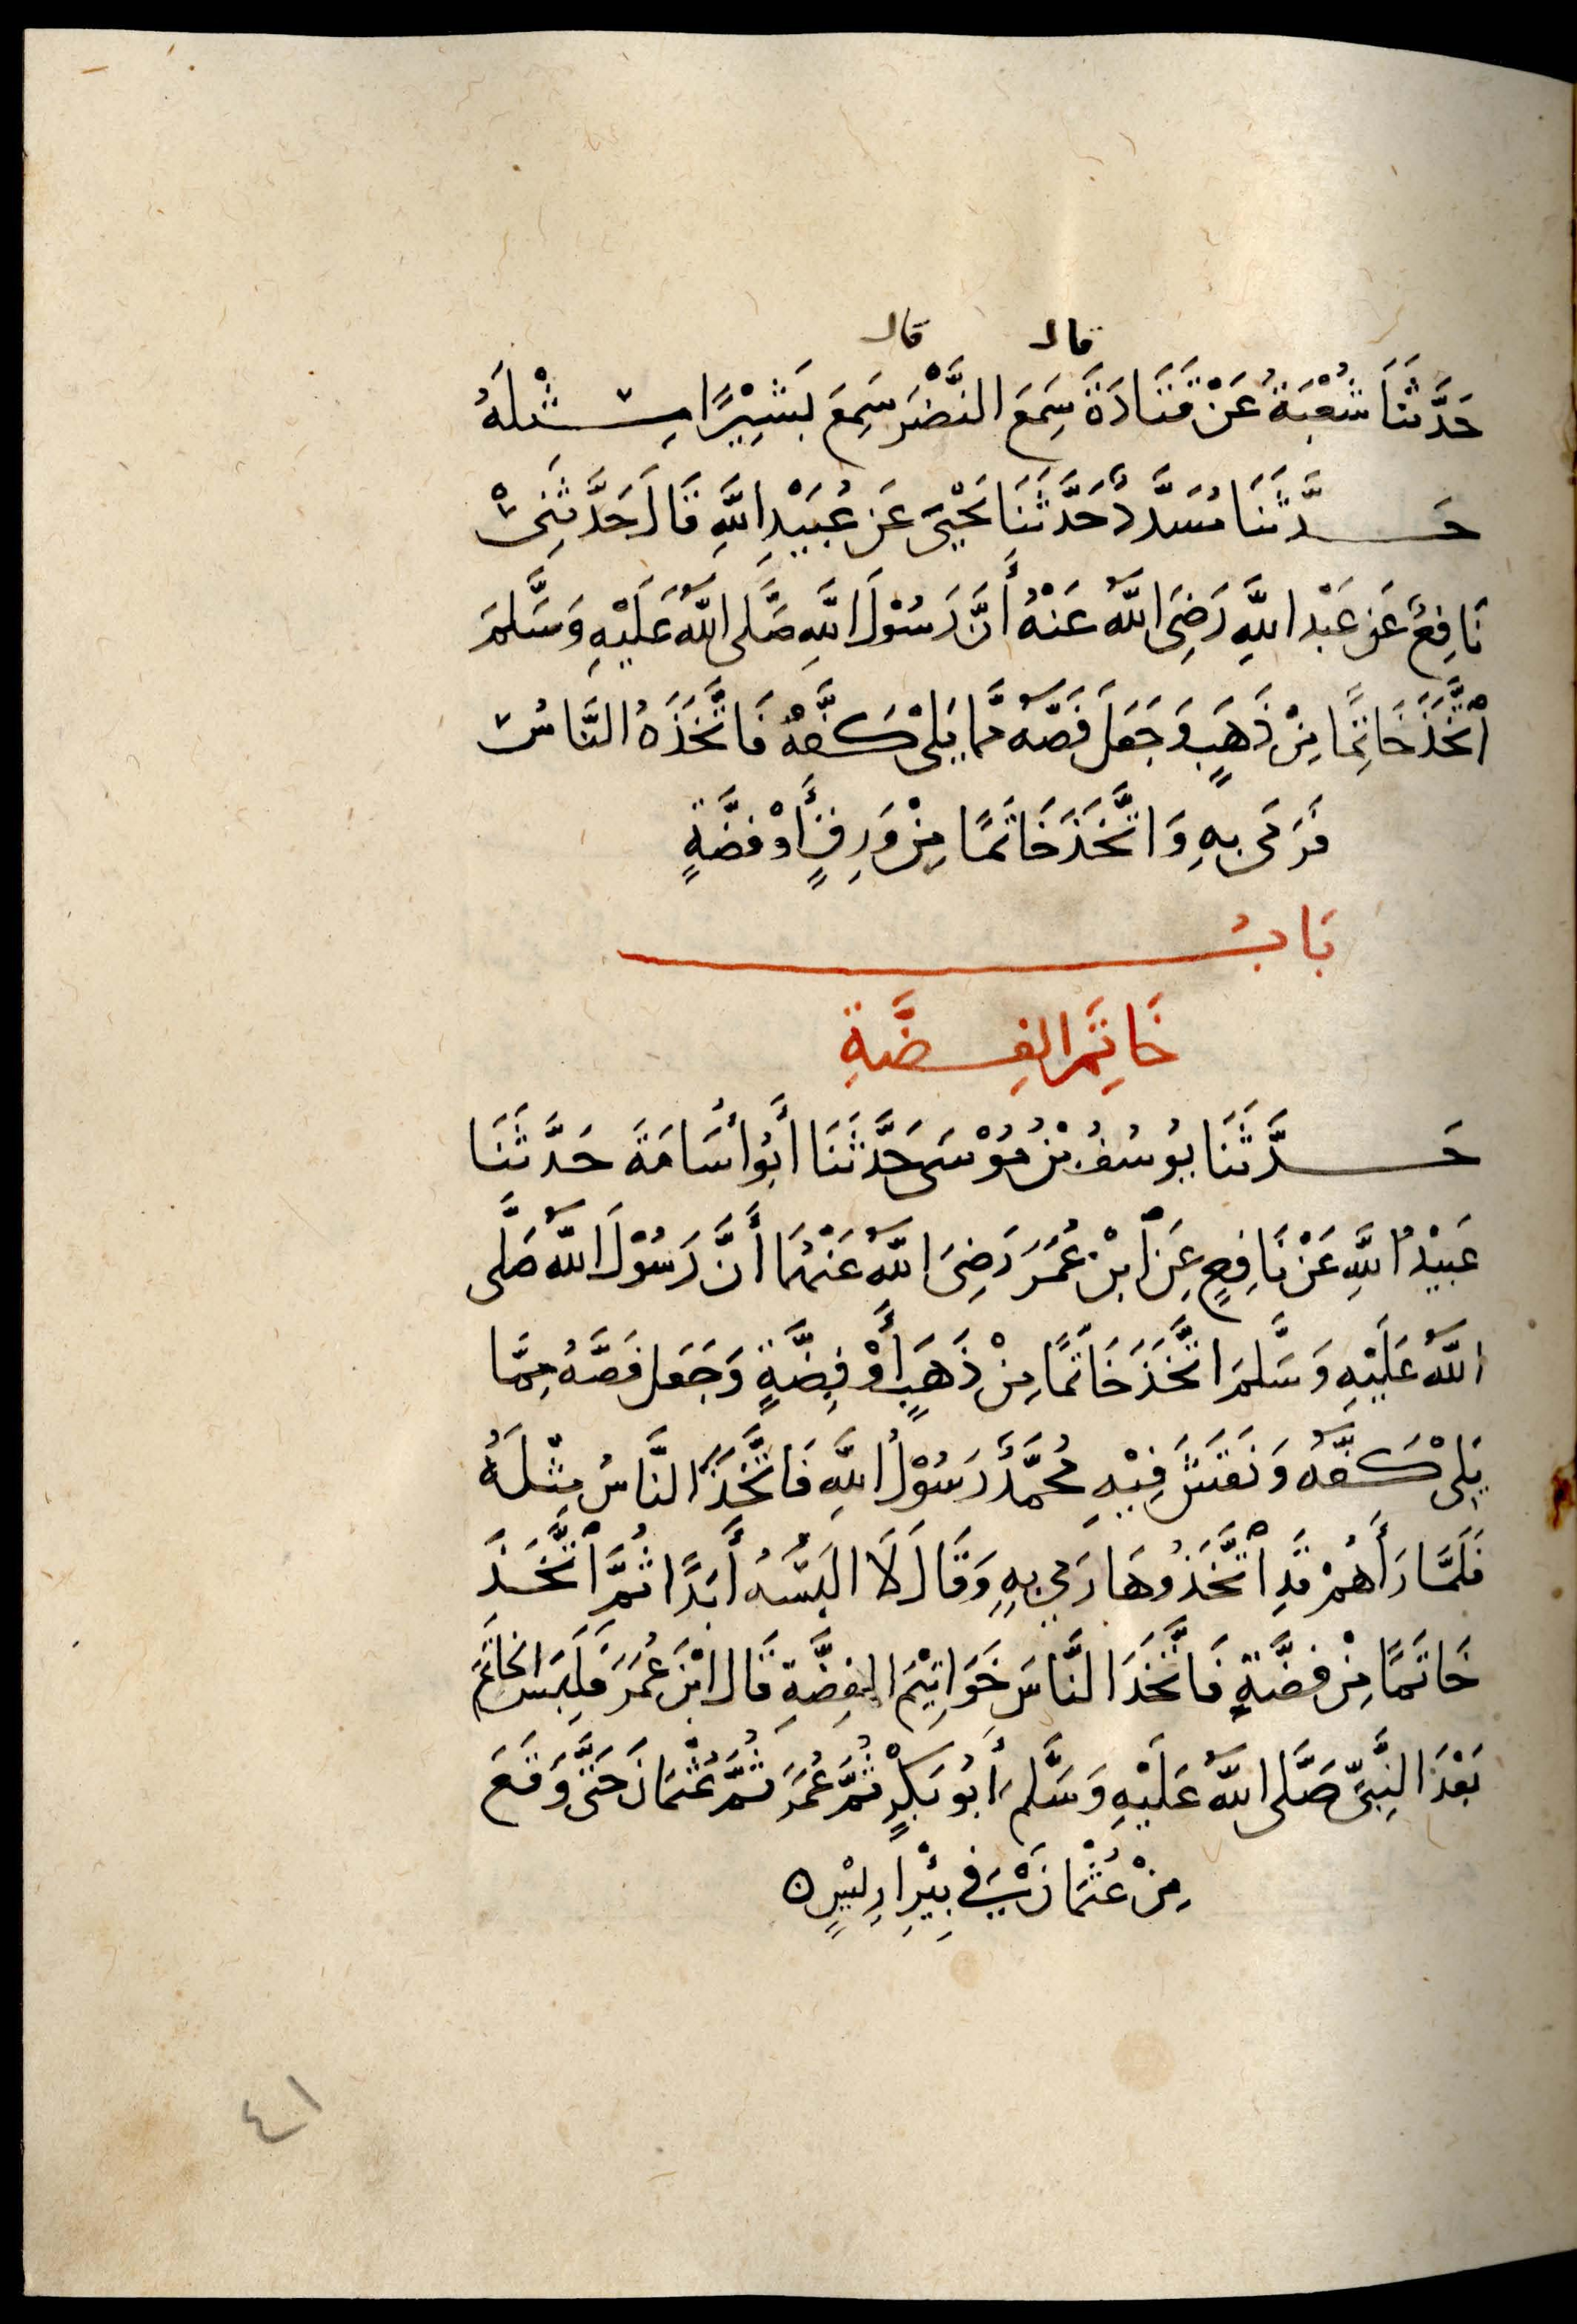 قال قال
حَدَّثَنَا شُعْبَةُ عَنْ قَتَادَةَ سَمِعَ النَّضْرَ سَمِعَ بَشِيْرًا مِثْلَهُ
حَدَّثَنَا مُسَدَّدٌ حَدَّثَنَا يَحْيَى عَنْ عُبَيْدِ اللَّهِ قَالَ حَدَّثَنِىْ
نَافِعٌ عَنْ عَبْدِ اللَّهِ رَضِىَ اللَّهُ عَنْهُ أَنَّ رَسُوْلَ اللَّهِ صَلَّى اللَّهُ عَلَيْهِ وَسَلَّمَ
اتَّخَذَ خَاتِمًا مِنْ ذَهَبٍ وَجَعَلَ فَصَّهُ مَّا يَلِىْ كَفَّهُ فَاتَّخَذَهُ النَّاسُ
فَرَمَى بِهِ وَاتَّخَذَ خَاتَمًا مِنْ وَرِقٍ أَوْ فضَّةٍ
بَابُ
خَاتِمَ الفِضَّةِ
حَدَّثَنَا يُوسُفُ بْنُ مُوْسَى حَدَّثَنَا أَبُو أُسَامَةَ حَدَّثَنَا
عَبَيْدُ اللَّهِ عَنْ نَافِعٍ عَنِ ابْنِ عُمَرَ رَضِىَ اللَّهُ عَنْهُمَا أَنَّ رَسُوْلَ اللَّهِ صَلَّى
اللَّهُ عَلَيْهِ وَسَلَّمَ اتَّخَذَ خَاتَمًا مِنْ ذَهَبٍ أَوْ فِضَّةٍ وَجَعَلَ فَصَّهُ مِمَّا
يَلِىْ كَفَّهُ وَنَقَشَ فِيْهِ مُحَمَّدٌ رَسُوْلُ اللَّهِ فَاتَّخَذَ النَّاسُ مِثْلَهُ
فَلَمَّا رَأَهُمْ قَدِ اتَّخَذُوهَا رَمى بِهِ وَقَالَ لَا البَسُهُ أَبَدًا ثُمَّ اتَّخَذَ
خَاتَمًا مِنْ فضَّةٍ فَاتَّخَذَ النَّاسَ خَوَاتِيْمَ الفِضَّةِ قَالَ ابْنَ عُمَرَ فَلَبِسَ الخَاتَمَ
بَعْدَ النَّبِىِّ صَلَّى اللَّهُ عَلَيْهِ وَسَلَّمَ أَبُو بَكْرٍ ثُمَّ عُمَرَ ثُمَّ عُثْمَانَ حَتَّى وَقَعَ
مِنْ عُثْمَانَ فى بِيْرِ ارِيْسٍ ه
٤١